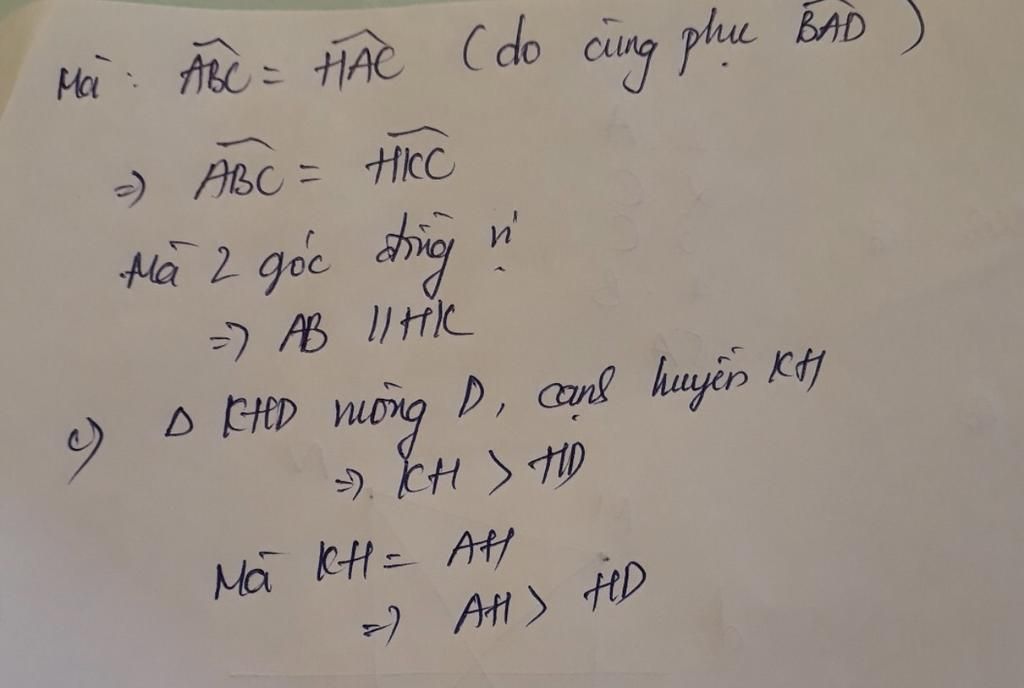 Mà: ABC = HAC (do cùng phụ BAD)
=> ABC = HKC
Mà 2 góc đồng vị
=> AB // HK
c) Δ KHD vuông D, cạnh huyền KH
=> KH > HD
Mà KH = AH
=> AH > HD